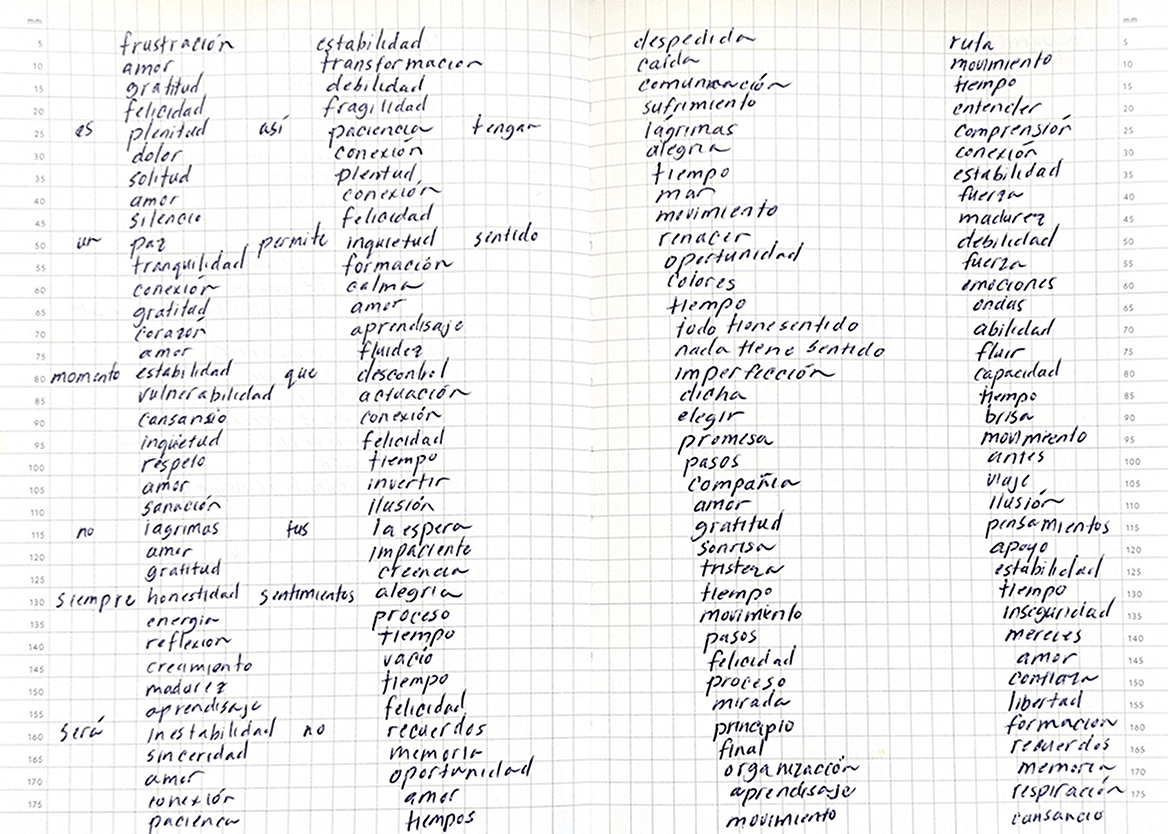 mm
5 frustración estabilidad
10 amor transformacion
15 gratitud debilidad
20 felicidad fragilidad
25 es plenitud así paciencia tengan
30 dolor conexión
35 solitud plentud
40 amor conexión
45 silencio felicidad
50 un paz permite inquietud sentido
55 tranquilidad formación
60 conexión calma
65 gratitud amor
70 corazón aprendisaje
75 amor fluidez
80 momento estabilidad que descontrol
85 vulnerabilidad actuación
90 cansansio conexión
95 inquietud felicidad
100 respeto tiempo
105 amor invertir
110 sanación ilusión
115 no lagrimas tus la espera
120 amor impaciente
125 gratitud creencia
130 siempre honestidad sentimientos alegria
135 energia proceso
140 reflexion tiempo
145 crecimiento vacío
150 madurez tiempo
155 aprendisaje felicidad
160 será inestabilidad no recuerdos
165 sinceridad memoria
170 amor oportunidad
175 conexión amor
paciencia tiempos
mm
despedida ruta 5
caída movimiento 10
comunicación tiempo 15
sufrimiento entender 20
lágrimas comprensión 25
alegria conexión 30
tiempo estabilidad 35
mar fuerza 40
movimiento madurez 45
renacer debilidad 50
oportunidad fuerza 55
colores emociones 60
tiempo ondas 65
todo tiene sentido abilidad 70
nada tiene sentido fluir 75
imperfección capacidad 80
dicha tiempo 85
elegir brisa 90
promesa movimiento 95
pasos antes 100
compañia viaje 105
amor ilusión 110
gratitud pensamientos 115
sonrisa apoyo 120
tristeza estabilidad 125
tiempo tiempo 130
movimiento inseguridad 135
pasos mereces 140
felicidad amor 145
proceso confiaza 150
mirada libertad 155
principio formacion 160
final recuerdos 165
organización memoria 170
aprendisaje respiración 175
movimiento cansancio